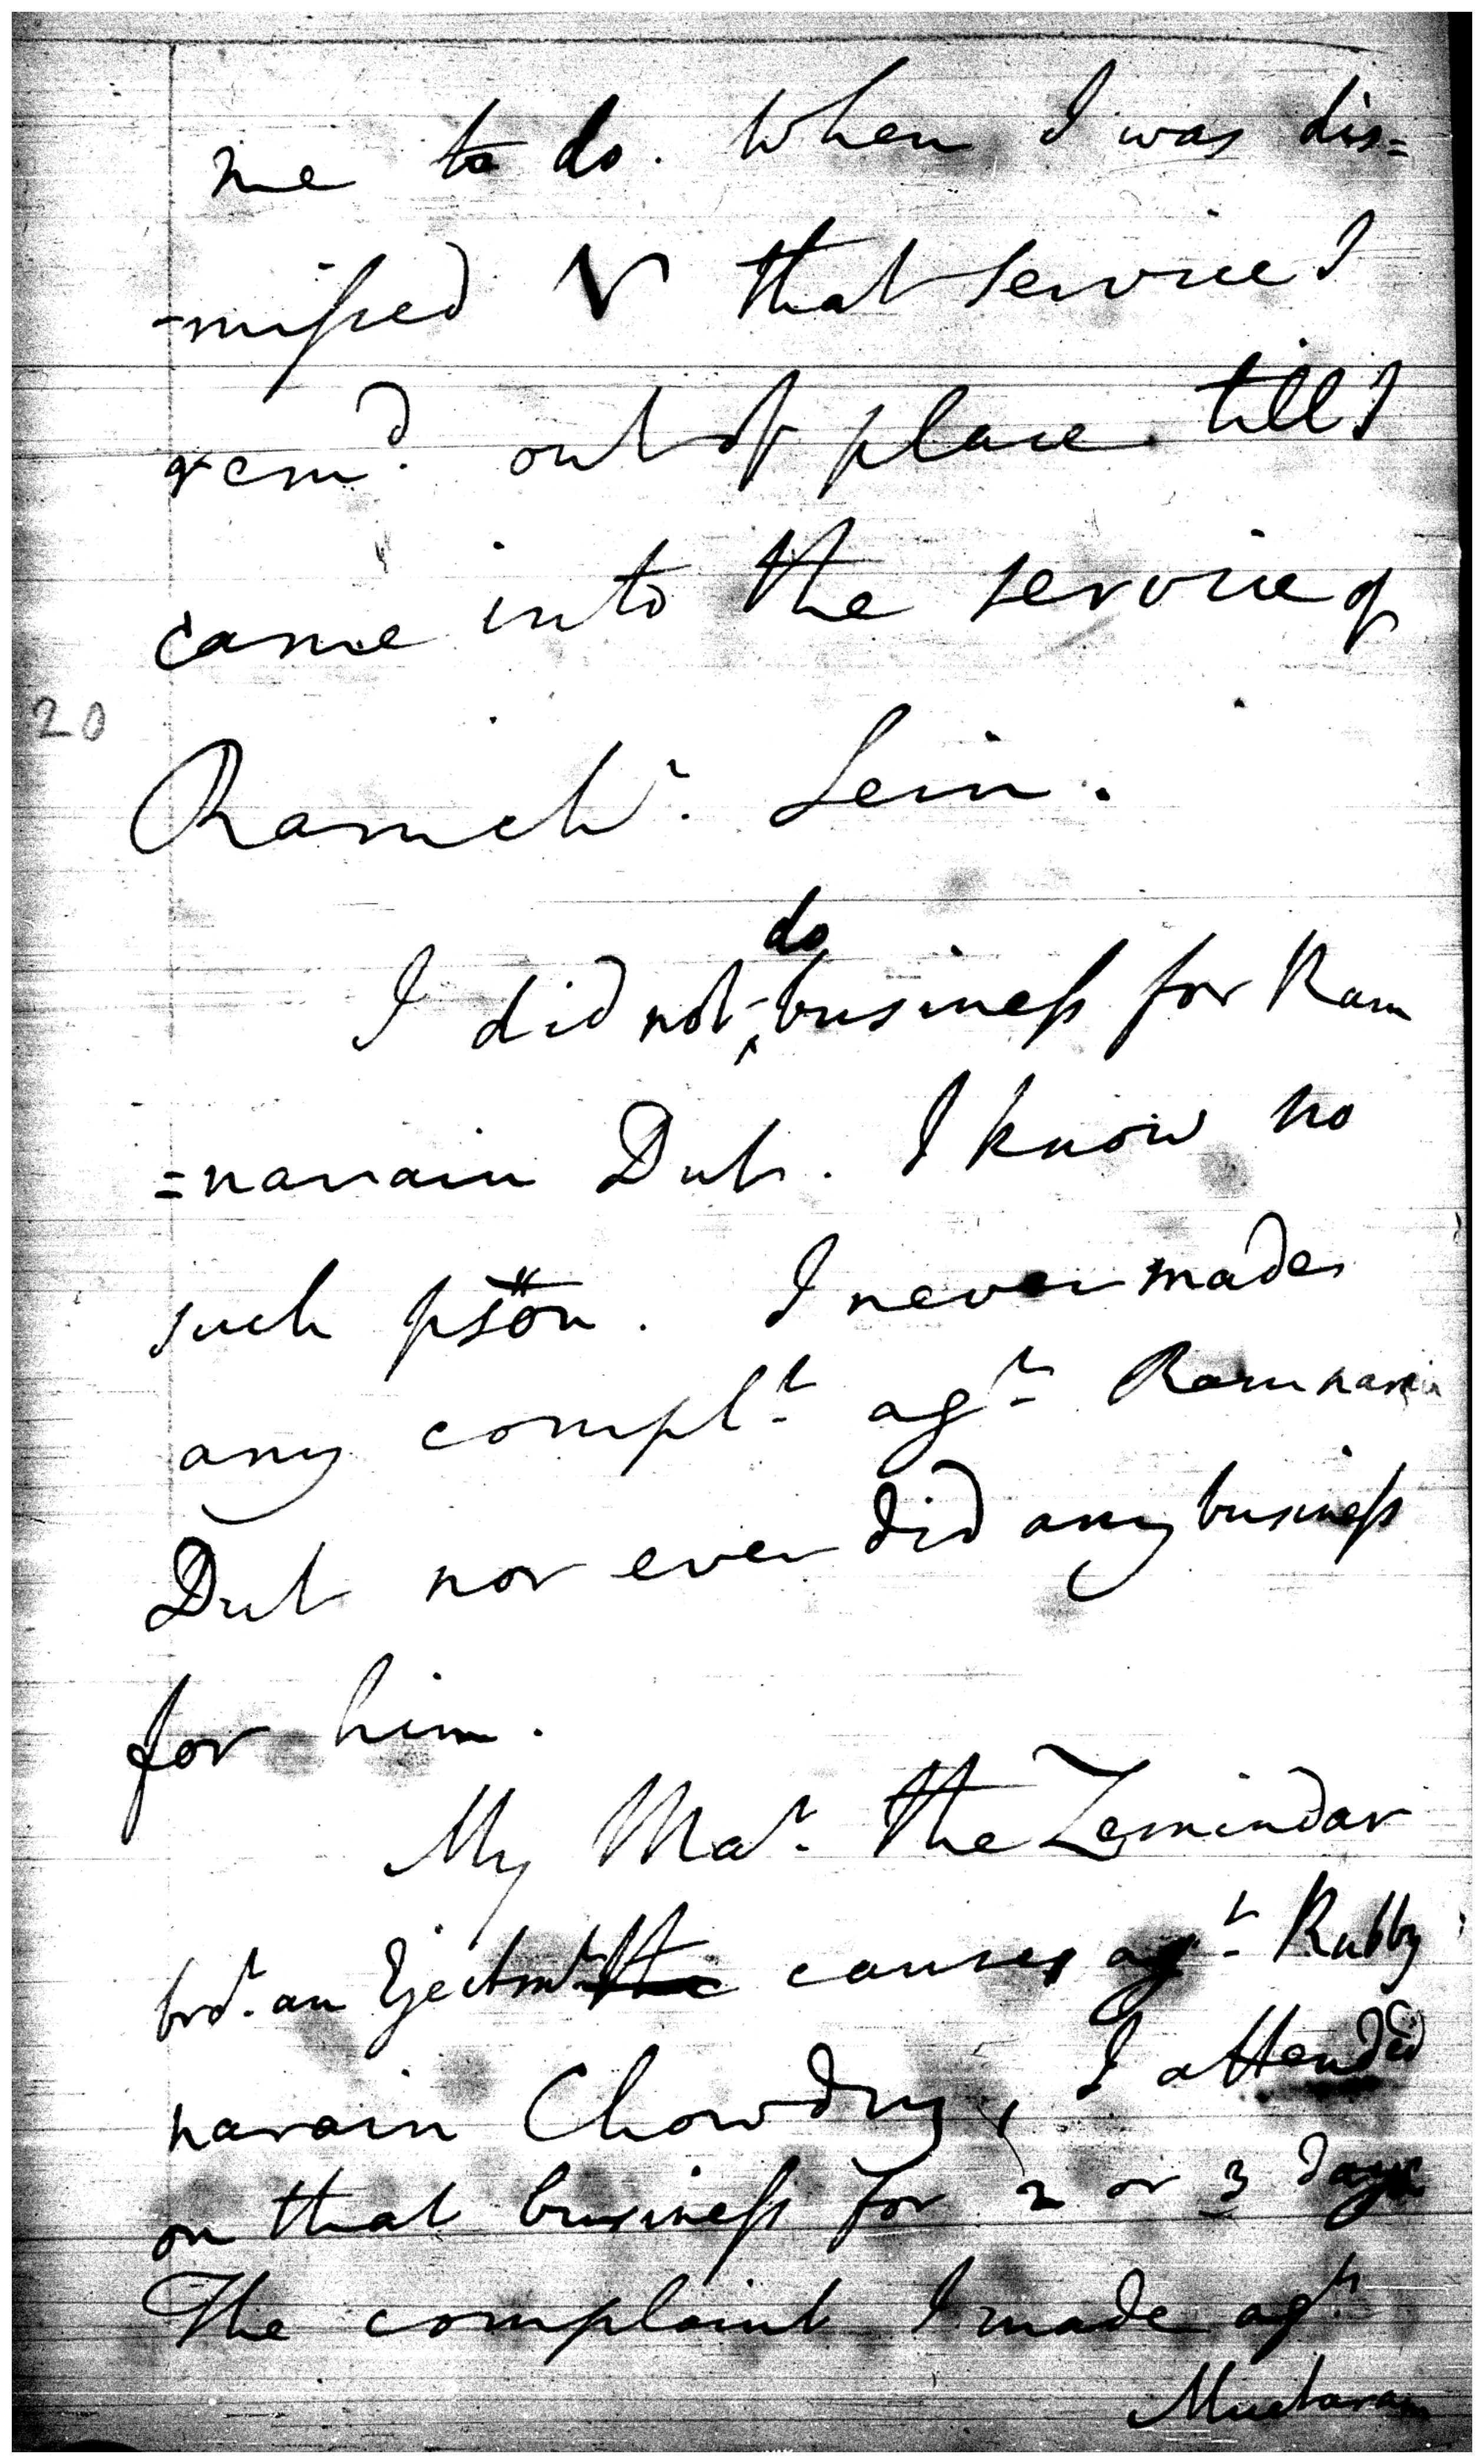 me to do. When I was dis=
-missed that service I
remd. out of place till I
came into the service of
20
Ramchr. Sein.
do
I did not business for Ram
=narain Dut. I know no
such pson. I never made
any complt. agt. Ramnarain
Dut nor ever did any business
for him.
My Mar. the Zemindar
brot. an Ejectmt. the causes agt. Rabby
narain Chowdry, I attended
on that business for 2 or 3 days
The complaint I made agt
Muctaram